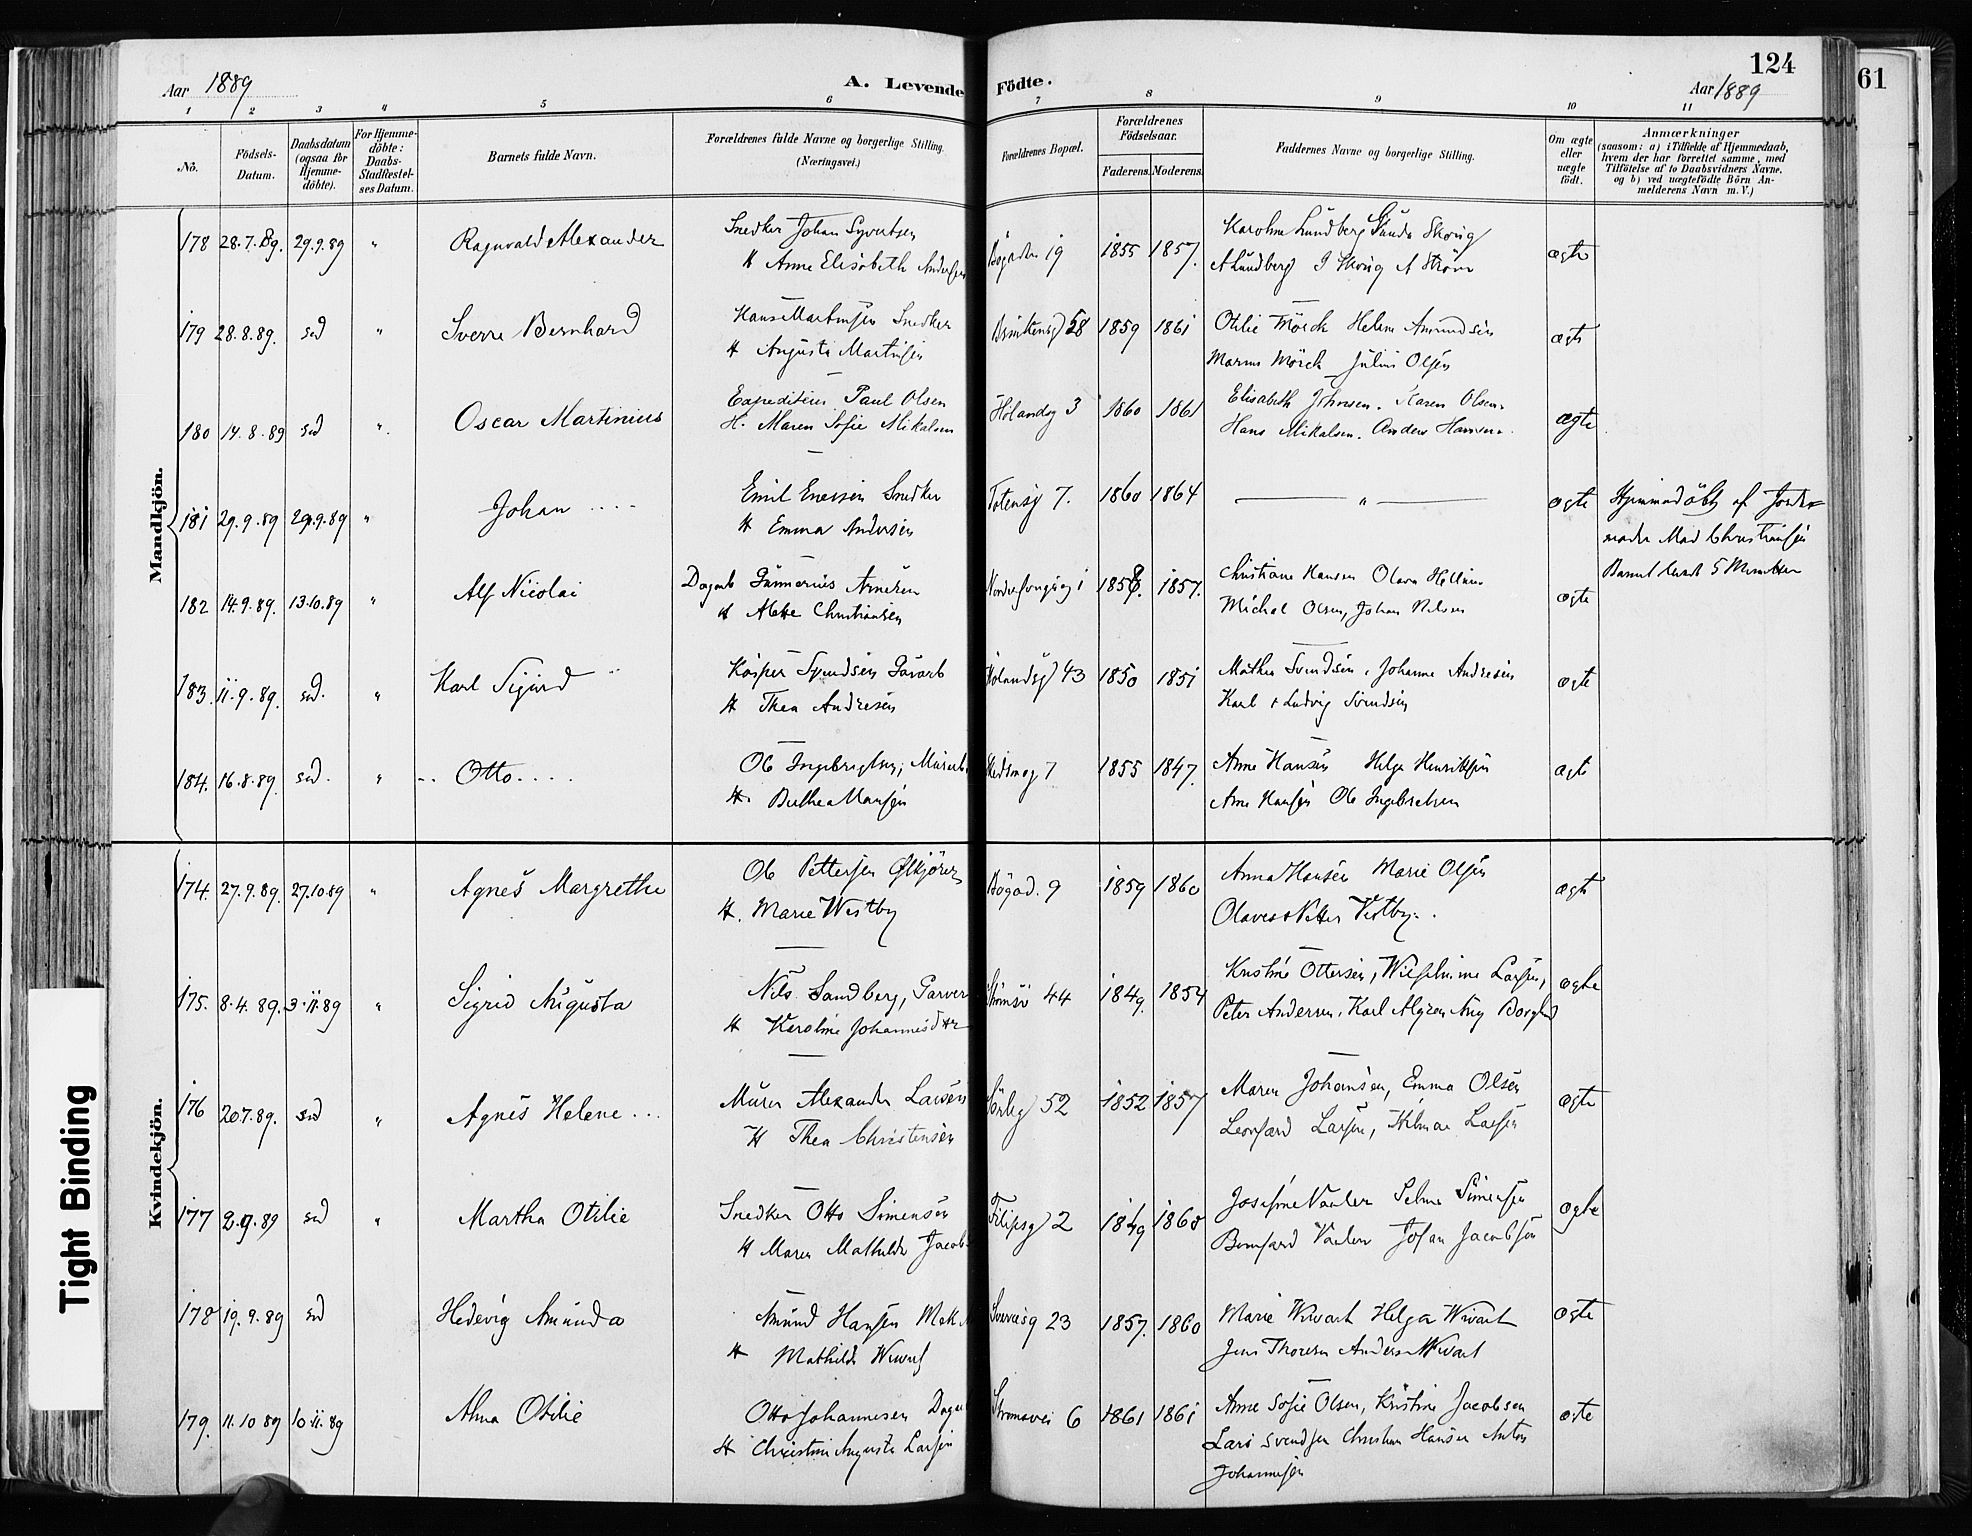 124
61
Aar 1889
A. Levende Födte.
Aar 1889
1 2 3 4 5 6 7 8 9 10 11
No.
Födsels-Datum.
Daabsdatum (ogsaa for Hjemme-döbte).
For Hjemme-döbte: Daabs-Stadfestel-ses Datum.
Barnets fulde Navn.
Forældrenes fulde Navne og borgerlige Stilling. (Næringsvei.)
Forældrenes Bopæl.
Forældrenes Födselsaar.
Faderens. Moderens.
Faddernes Navne og borgerlige Stilling.
Om ægte eller uægte født.
Anmærkninger
(saasom: a) i Tilfælde af Hjemmedaab,
hvem der har forrettet samme, med
Tilföielse af to Daabsvidners Navne.
og b) ved uægtefödte Börn An-
melderens Navn m. V.)
Mandkjön.
178 28.7.89. 29.9.89 " Ragnvald Alexander Snedker Johan Syvertsen 19 1855 1857. Karoline Lundberg Skoug ægte
H Anne Elisabeth Andersen A Lundberg J Skoug A Ström
179 28.8.89. sed " Sverre Bernhard Hans Martinsen Snedker 58 1859 1861 Otilie Mörck Helene Amundsen ægte
H Augusta Martinsen Marius Mörck Julius Olsen
180 14.8.89 sed " Oscar Martinius Expeditör Paul Olsen Hölandsg 3 1860 1861 Elisabeth Johnsen. Karen Olsen. ægte
H. Maren Sofie Mikalsen Hans Mikalsen. Anders Hansen.
181 29.9.89 29.9.89 " Johan .... Emil Enersen Snedker Totensg 7. 1860 1864 " ægte Hjemmedöbt af Jorde-
H Emma Andersen moder Mad Christiansen
Barnet levede 5 Minutter
182 14.9.89. 13.10.89 " Alf Nicolai Dagarb Gunnerius Arnesen 1 1858. 1857. Christiane Hansen Olava ægte
H Alette Christiansen Michal Olsen, Johan Nilsen
183. 11.9.89. sed. " Karl Sigurd Kasper Svendsen Gavarb Hölandsg 43 1850 1851 Mathea Svendsen, Johanne Andresen ægte
H Thea Andresen Karl + Ludvig Svendsen
184. 16.8.89. sed. " Otto.... Ole Ingebrigtsen, Murarb 7 1855 1847. Anne Hansen Helga Henriksen ægte
H. Berthea Hansen Arne Hansen Ole Ingebretsen
Kvindekjön.
174. 27.9.89. 27.10.89 " Agnes Margrethe Ole Pettersen Ölkjörer Bögad. 9 1859 1860 Anna Hansen Marie Olsen ægte
H. Marie Westby Olaves + Petter Vestby.
175. 8.4.89. 3.11.89 " Sigrid Augusta Nils Sandberg, Garver 44 1849. 1854 Kristine Ottersen, Wilhelmine Larsen, ægte
H Karoline Johannesdtr Peter Andersen. Karl Algren Aug
176 20.7.89. sed " Agnes Helene ... Murer Alexander Larsen Sörlig 52 1852 1857 Maren Johansen, Emma Olsen ægte
H Thea Christensen Leonhard Larsen, Hilmar Larsen
177 2.9.89 sed " Martha Otilie Snedker Otto Simensen Filipsg 2 1849 1860 Josefine Vaaler Selma Simensen ægte
H Maren Mathilde Jacobs Bernhard Vaaler Johan Jacobsen
178 19.9.89 sed Hedevig Amunda Amund Hansen Mek Sverresg 23 1857. 1860 Marie Wivart Helga Wivart ægte
H Mathilde Wivart Jens Thoresen Anders Wivart
179. 11.10 89 10 11.89 Alma Otilie Otto Johannesen Dagarb Strömsvei 6 1861 1861 Anne Sofie Olsen, Kristine Jacobsen ægte
H Christine Augusta Larsen Lars Svendsen Christian Hansen Anton
Johannesen
Tight Binding